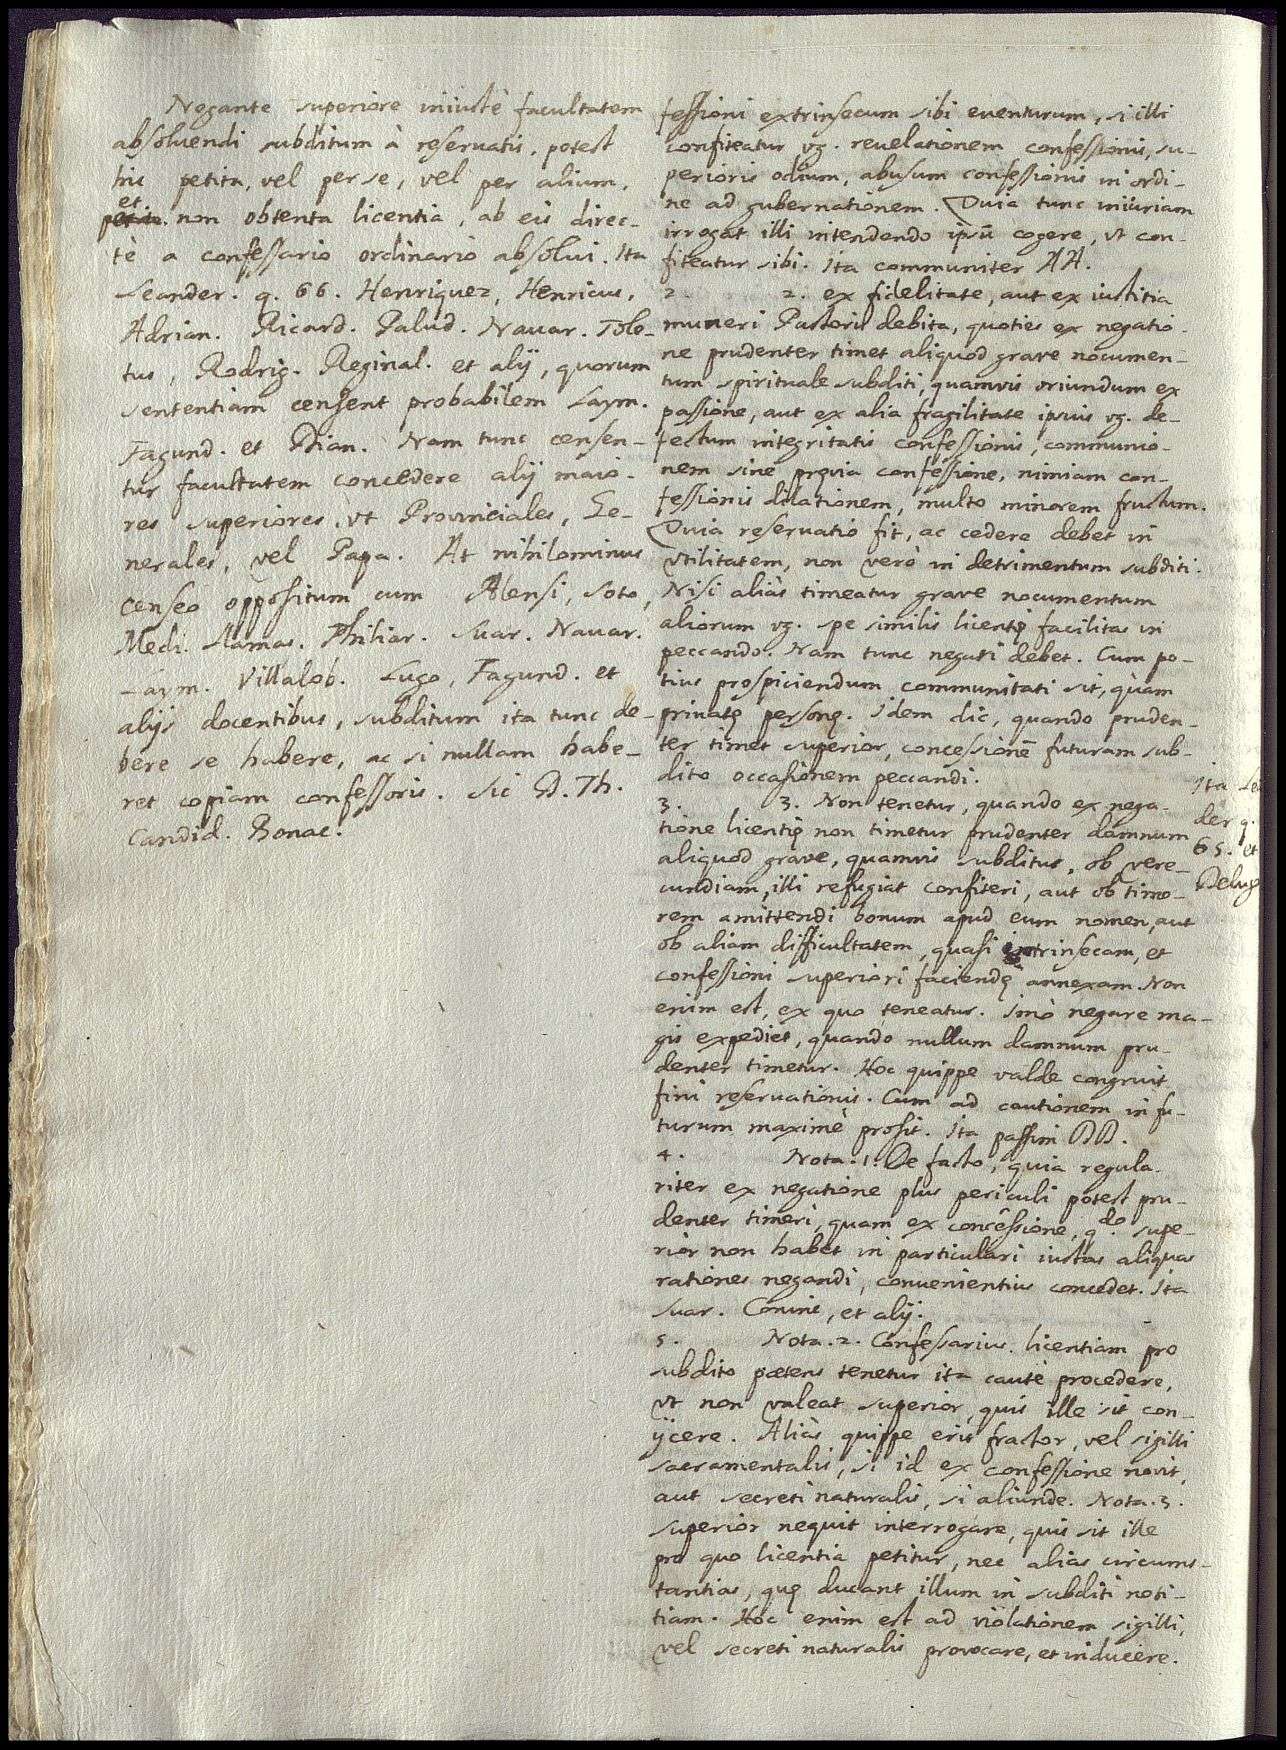 Negante superiore iniustè facultatem
absoluendi subditum à reseruatis, potest
hic petita, vel per se, vel per alium,
et
petita. non obtenta licentia, ab eis direc-
tè a confessario ordinario absolui. Ita
Leander. q. 66. Henriquez, Henricus,
Adrian. Ricard. Palud. Nauar. Tole-
tus, Rodrig. Reginal. et alij, quorum
sententiam censent probabilem Laym.
Fagund. et Dian. Nam tunc censen-
tur facultatem concedere alij maio-
res superiores, vt Prouinciales, Ge-
nerales, vel Papa. At nihilominus
censeo oppositum cum Alensi, Soto,
Medi. Llamas. Philiar. Suar. Nauar.
Laym. Villalob. Lugo, Fagund. et
alijs docentibus, subditum ita tunc de-
bere se habere, ac si nullam habe-
ret copiam confessoris. Sic D. Th.
Candid. Bonac.
fessioni extrinsecum sibi euenturum, si illi
confiteatur vg. reuelationem confessionis, su-
perioris odium, abusum confessionis in ordi-
ne ad gubernationem. Quia tunc iniuriam
irrogat illi intendendo ipsū cogere, vt con-
fiteatur sibi. Ita communiter AA.
2 2. ex fidelitate, aut ex iustitia
muneri Pastoris debita, quoties ex negatio-
ne prudenter timet aliquod graue nocumen-
tum spirituale subditi, quamuis oriundum ex
passione, aut ex alia fragilitate ipsius vg. de-
fectum integritatis confessionis, communio-
nem sine preuia confessione, nimiam con-
fessionis dilationem, multo minorem fructum.
Quia reseruatio fit, ac cedere debet in
vtilitatem, non verò in detrimentum subditi.
Nisi aliàs timeatur graue nocumentum
aliorum vg. spe similis licentię facilitas in
peccando. Nam tunc negari debet. Cum po-
tius prospiciendum communitati sit, quàm
priuatę personę. Idem dic, quando pruden-
ter timet superior, concessionē futuram sub-
dito occasionem peccandi.
3. 3. Non tenetur, quando ex nega-
tione licentię non timetur prudenter damnum
aliquod graue, quamuis subditus, ob vere-
cundiam, illi refugiat confiteri, aut ob timo-
rem amittendi bonum apud eum nomen, aut
ob aliam difficultatem, quasi intrinsecam, et
confessioni superiori faciendę annexam. Non
enim est, ex quo teneatur. Imò negare ma-
gis expediet, quando nullum damnum pru-
denter timetur. Hoc quippe valde congruit
fini reseruationis. Cum ad cautionem in fu-
turum maximè prosit. Ita passim DD.
4. Nota. 1. De facto, quia regula-
riter ex negatione plus periculi potest pru-
denter timeri, quam ex concessione, qdo. supe-
rior non habet in particulari iustas aliquas
rationes negandi, conuenientius concedet. Ita
Suar. Coninc, et alij.
5. Nota. 2. Confessarius. licentiam pro
subdito petens tenetur ita cautè procedere,
vt non valeat superior, quis ille sit con-
ijcere. Aliàs quippe erit fractor, vel sigilli
sacramentalis, si id ex confessione nouit,
aut secreti naturalis, si aliunde. Nota. 3.
superior nequit interrogare, quis sit ille
pro quo licentia petitur, nec alias circums-
tantias, quę ducant illum in subditi noti-
tiam. Hoc enim est ad violationem sigilli,
vel secreti naturalis prouocare, et inducere.
Ita Le
der q.
65. et
Delug